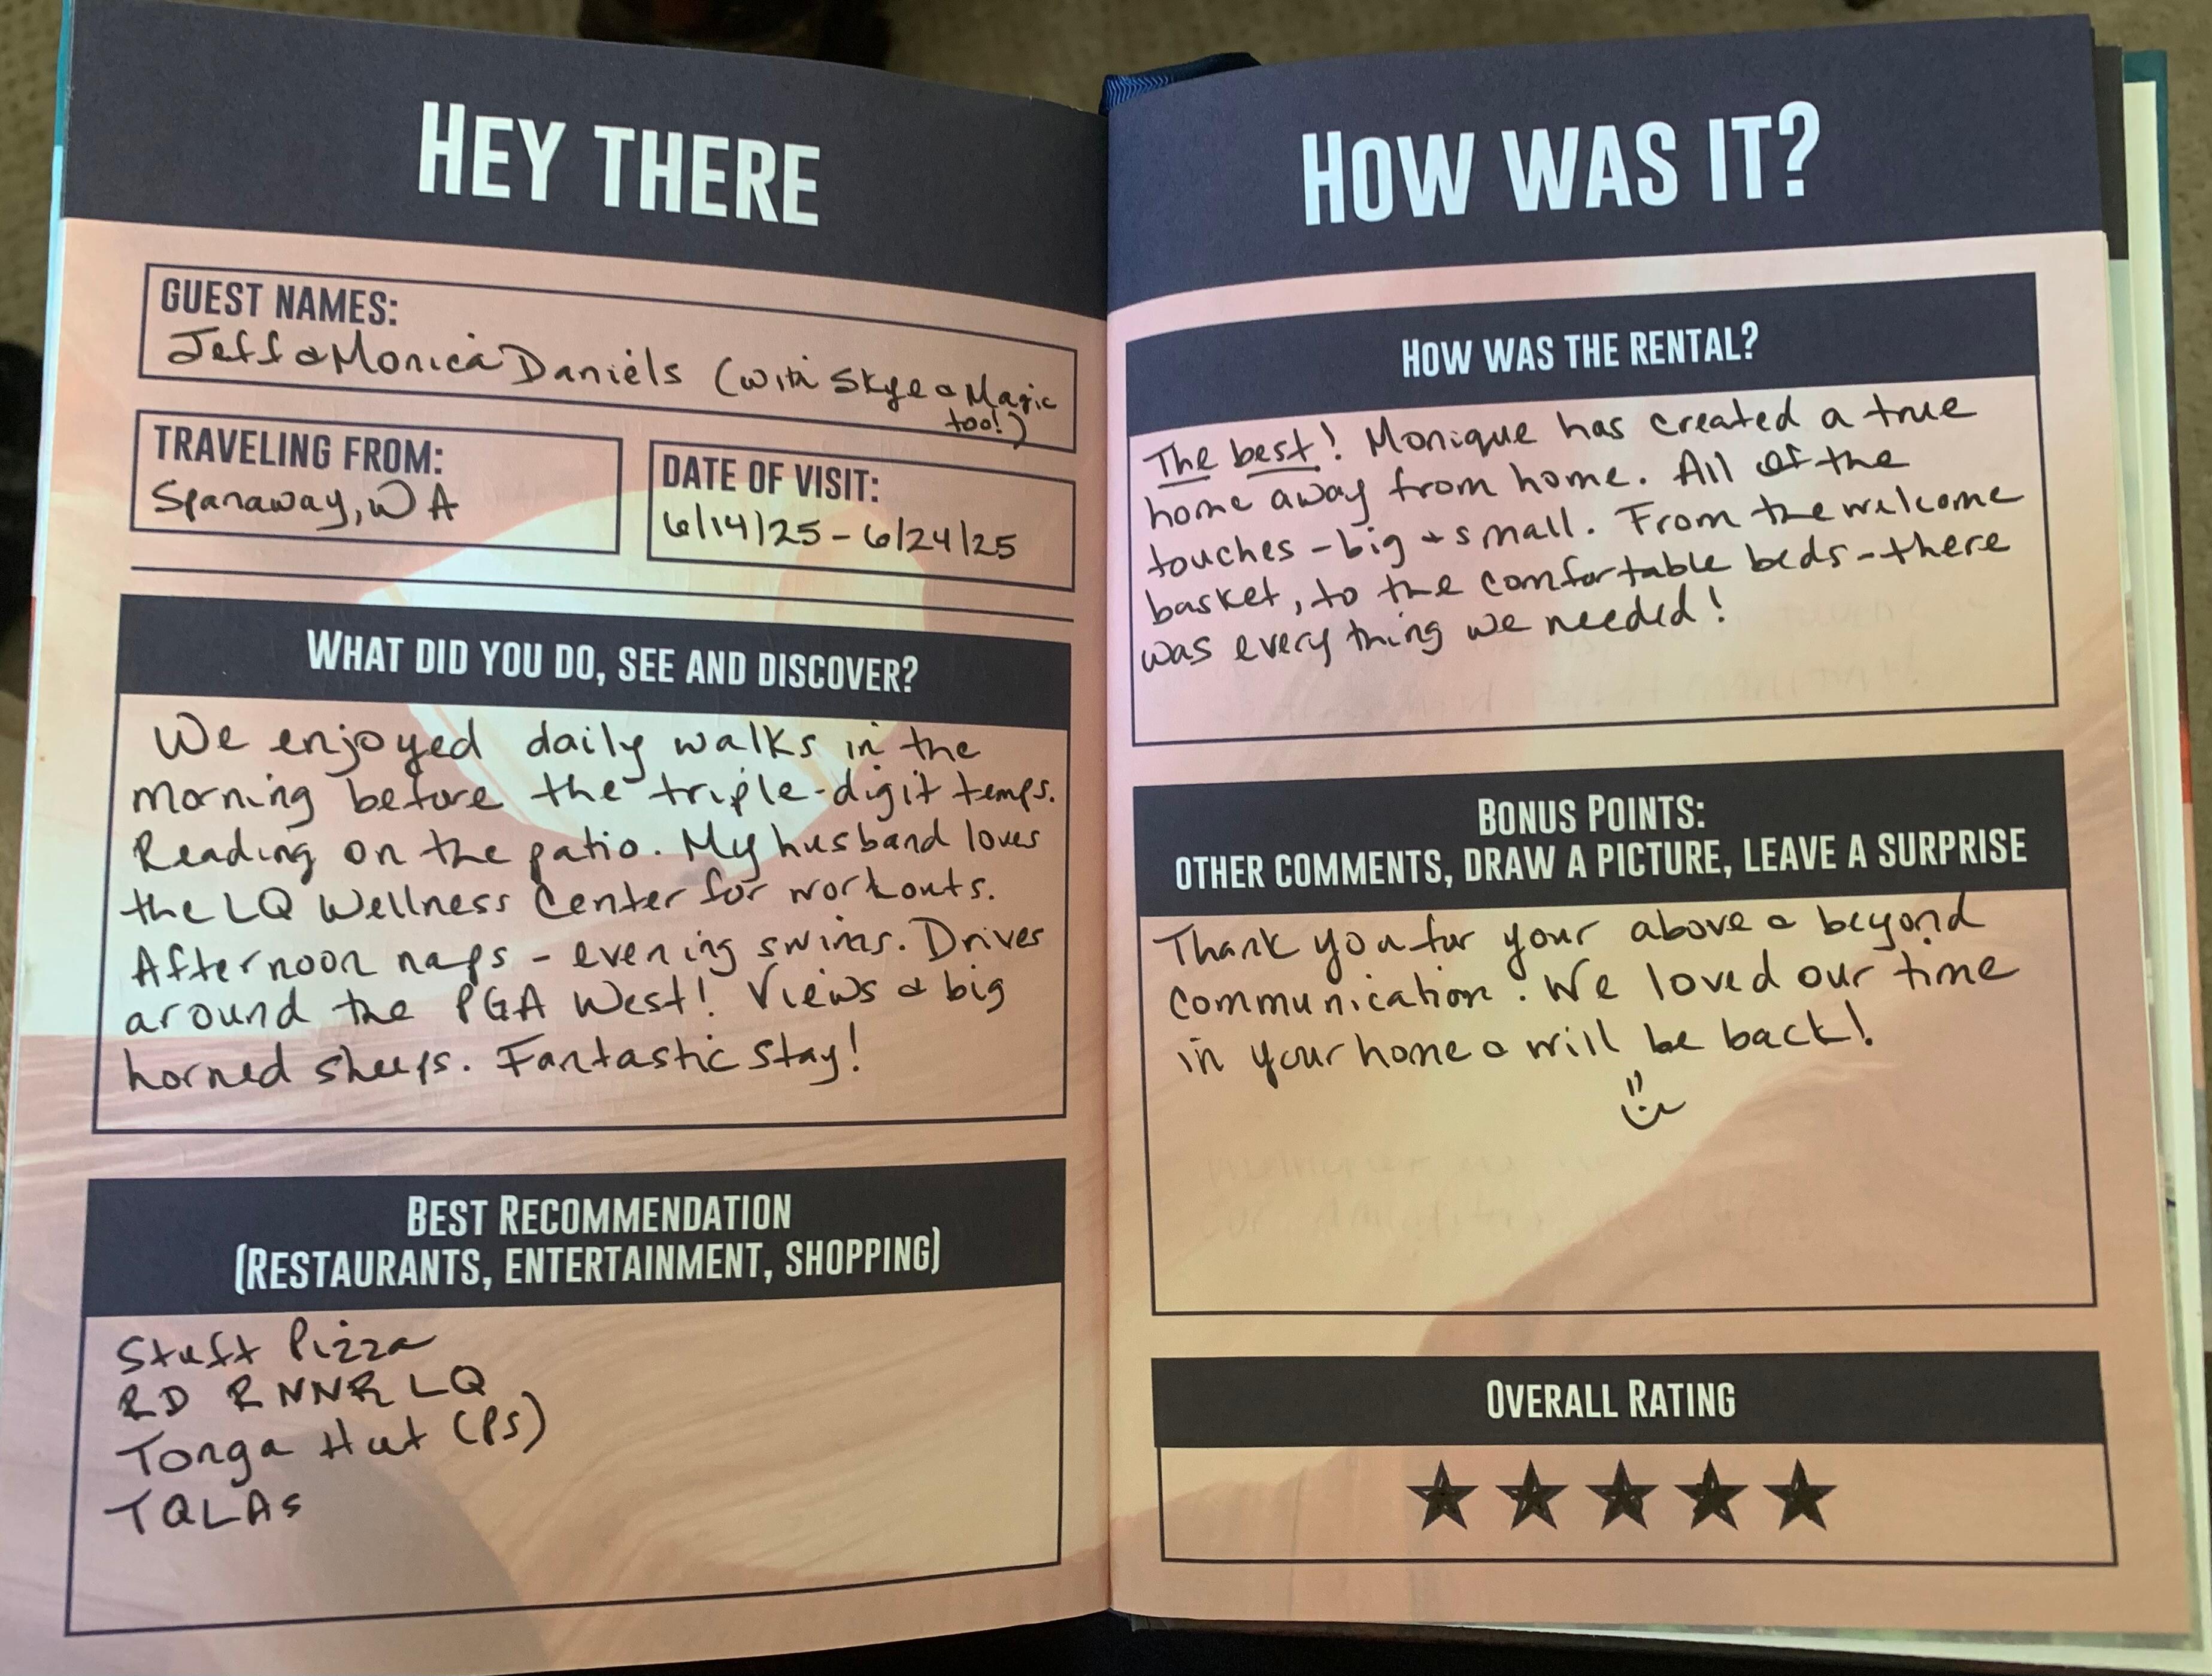 HEY THERE
GUEST NAMES:
Jeff & Monica Daniels (with Skye & Magic
too!)
TRAVELING FROM:
Spanaway, WA
DATE OF VISIT:
6/14/25 - 6/24/25
WHAT DID YOU DO, SEE AND DISCOVER?
We enjoyed daily walks in the
morning before the triple-digit temps.
Reading on the patio. My husband loves
the LQ Wellness Center for workouts.
Afternoon naps - evening swims. Drives
around the PGA West! Views & big
horned sheeps. Fantastic stay!
BEST RECOMMENDATION
(RESTAURANTS, ENTERTAINMENT, SHOPPING)
Stuft Pizza
RD RNNR LQ
Tonga Hut (PS)
TQLAs
HOW WAS IT?
HOW WAS THE RENTAL?
The best! Monique has created a true
home away from home. All of the
touches - big & small. From the welcome
basket, to the comfortable beds - there
was everything we needed!
BONUS POINTS:
OTHER COMMENTS, DRAW A PICTURE, LEAVE A SURPRISE
Thank you for your above & beyond
communication. We loved our time
in your home & will be back!
OVERALL RATING